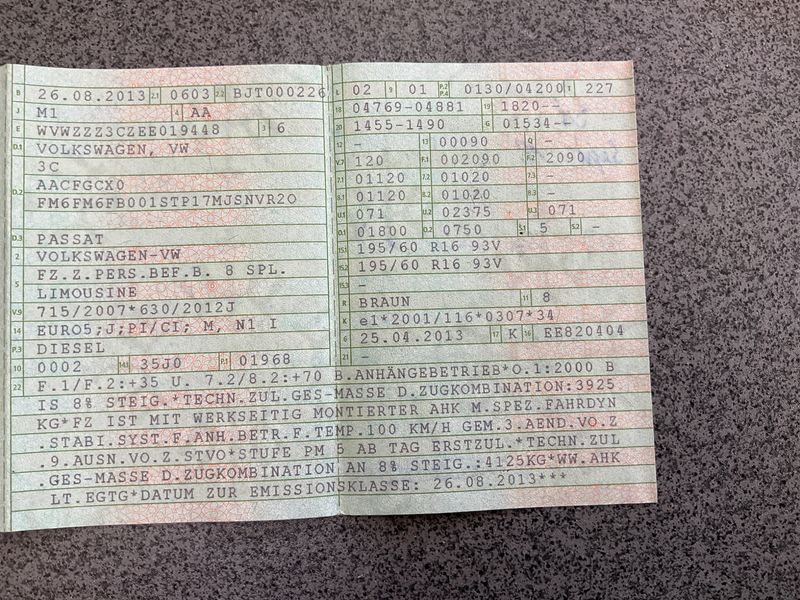 B 26.08.2013 2.1 0603 2.2 BJT000226
J M1 4 AA
E WVWZZZ3CZEE019448 3 6
D.1 VOLKSWAGEN, VW
3C
D.2 AACFGCX0
FM6FM6FB001STP17MJSNVR2O
D.3 PASSAT
2 VOLKSWAGEN-VW
5 FZ.Z.PERS.BEF.B. 8 SPL.
LIMOUSINE
V.9 715/2007*630/2012J
14 EURO5;J;PI/CI; M, N1 I
P.3 DIESEL
10 0002 14.1 35J0 P.1 01968
L 02 9 01 P.2 P.4 0130/04200 T 227
18 04769-04881 19 1820--
20 1455-1490 G 01534--
12 - 13 00090 Q -
V.7 120 F.1 002090 F.2 2090
7.1 01120 7.2 01020 7.3 -
8.1 01120 8.2 01020 8.3 -
U.1 071 U.2 02375 U.3 071
O.1 01800 O.2 0750 S.1 5 S.2 -
15.1 195/60 R16 93V
15.2 195/60 R16 93V
15.3 -
R BRAUN 11 8
K e1*2001/116*0307*34
6 25.04.2013 17 K 16 EE820404
21 -
22 F.1/F.2:+35 U. 7.2/8.2:+70 B.ANHÄNGEBETRIEB*O.1:2000 B
IS 8% STEIG.*TECHN.ZUL.GES-MASSE D.ZUGKOMBINATION:3925
KG*FZ IST MIT WERKSEITIG MONTIERTER AHK M.SPEZ.FAHRDYN
.STABI.SYST.F.ANH.BETR.F.TEMP.100 KM/H GEM.3.AEND.VO.Z
.9.AUSN.VO.Z.STVO*STUFE PM 5 AB TAG ERSTZUL.*TECHN.ZUL
.GES-MASSE D.ZUGKOMBINATION AN 8% STEIG.:4125KG*WW.AHK
LT.EGTG*DATUM ZUR EMISSIONSKLASSE: 26.08.2013***